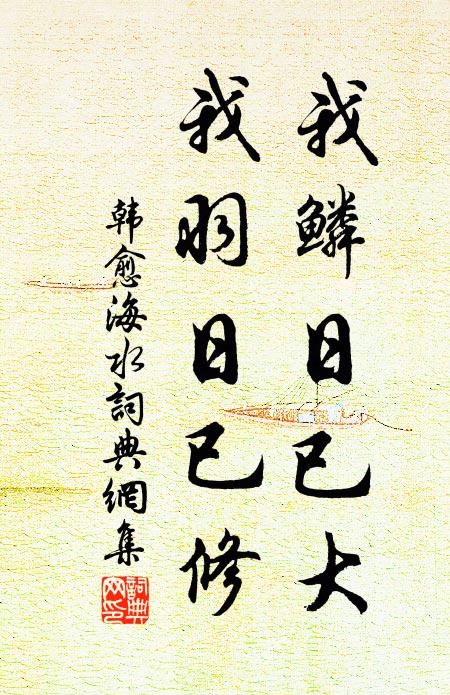 我鳞日已大
我羽日已修
韩愈海水詞典網集
詞典网印